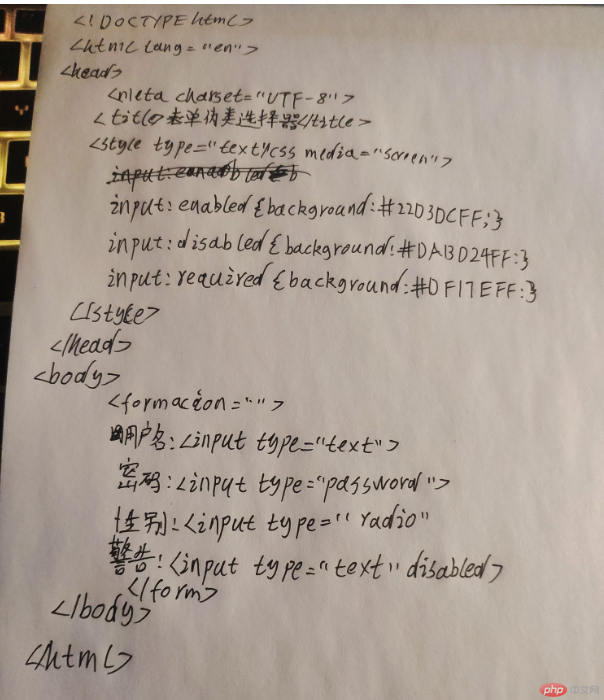 <!DOCTYPE html>
<html lang="en">
<head>
<meta charset="UTF-8">
<title>表单伪类选择器</title>
<style type="text/css media="screen">
input:enabled{background:#22D3DCFF;}
input:disabled{background:#DA13D24FF:}
input:required{background:#DF17EFF:}
</style>
</head>
<body>
<formacion="">
用户名:<input type="text">
密码:<input type="password">
性别:<input type="radio"
警告:<input type="text" disabled>
</form>
</body>
<html>
php 中文网